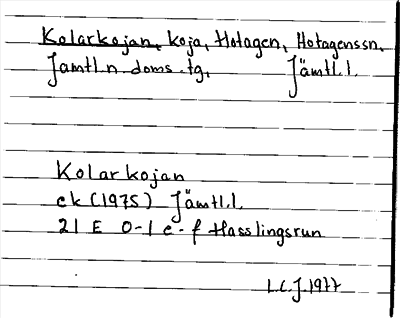 Kolarkojan, koja, Hotagen, Hotagenssn,
Jämtl.n. doms.tg, Jämtl.l.
Kolarkojan
ek (1975) Jämtl.l.
21 E 0-1 e-f Hasslingsrun
I.C.J. 1977